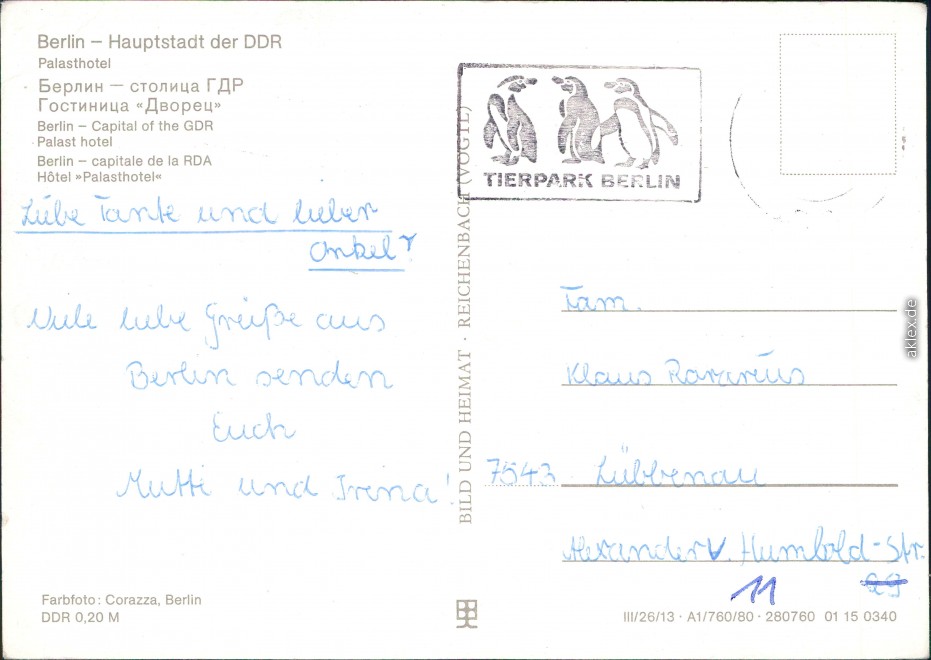 Berlin – Hauptstadt der DDR
Palasthotel
Берлин — столица ГДР
Гостиница «Дворец»
Berlin – Capital of the GDR
Palast hotel
Berlin – capitale de la RDA
Hôtel »Palasthotel«
Liebe Tante und lieber
Onkel
Viele liebe Grüße aus
Berlin senden
Euch
Mutti und Irena!
Farbfoto: Corazza, Berlin
DDR 0,20 M
BILD UND HEIMAT · REICHENBACH (VOGTL)
TIERPARK BERLIN
Fam.
Klaus
7543 Lübbenau
Alexander v. Humbold-Str.
11
III/26/13 · A1/760/80 · 280760 01 15 0340
aklex.de